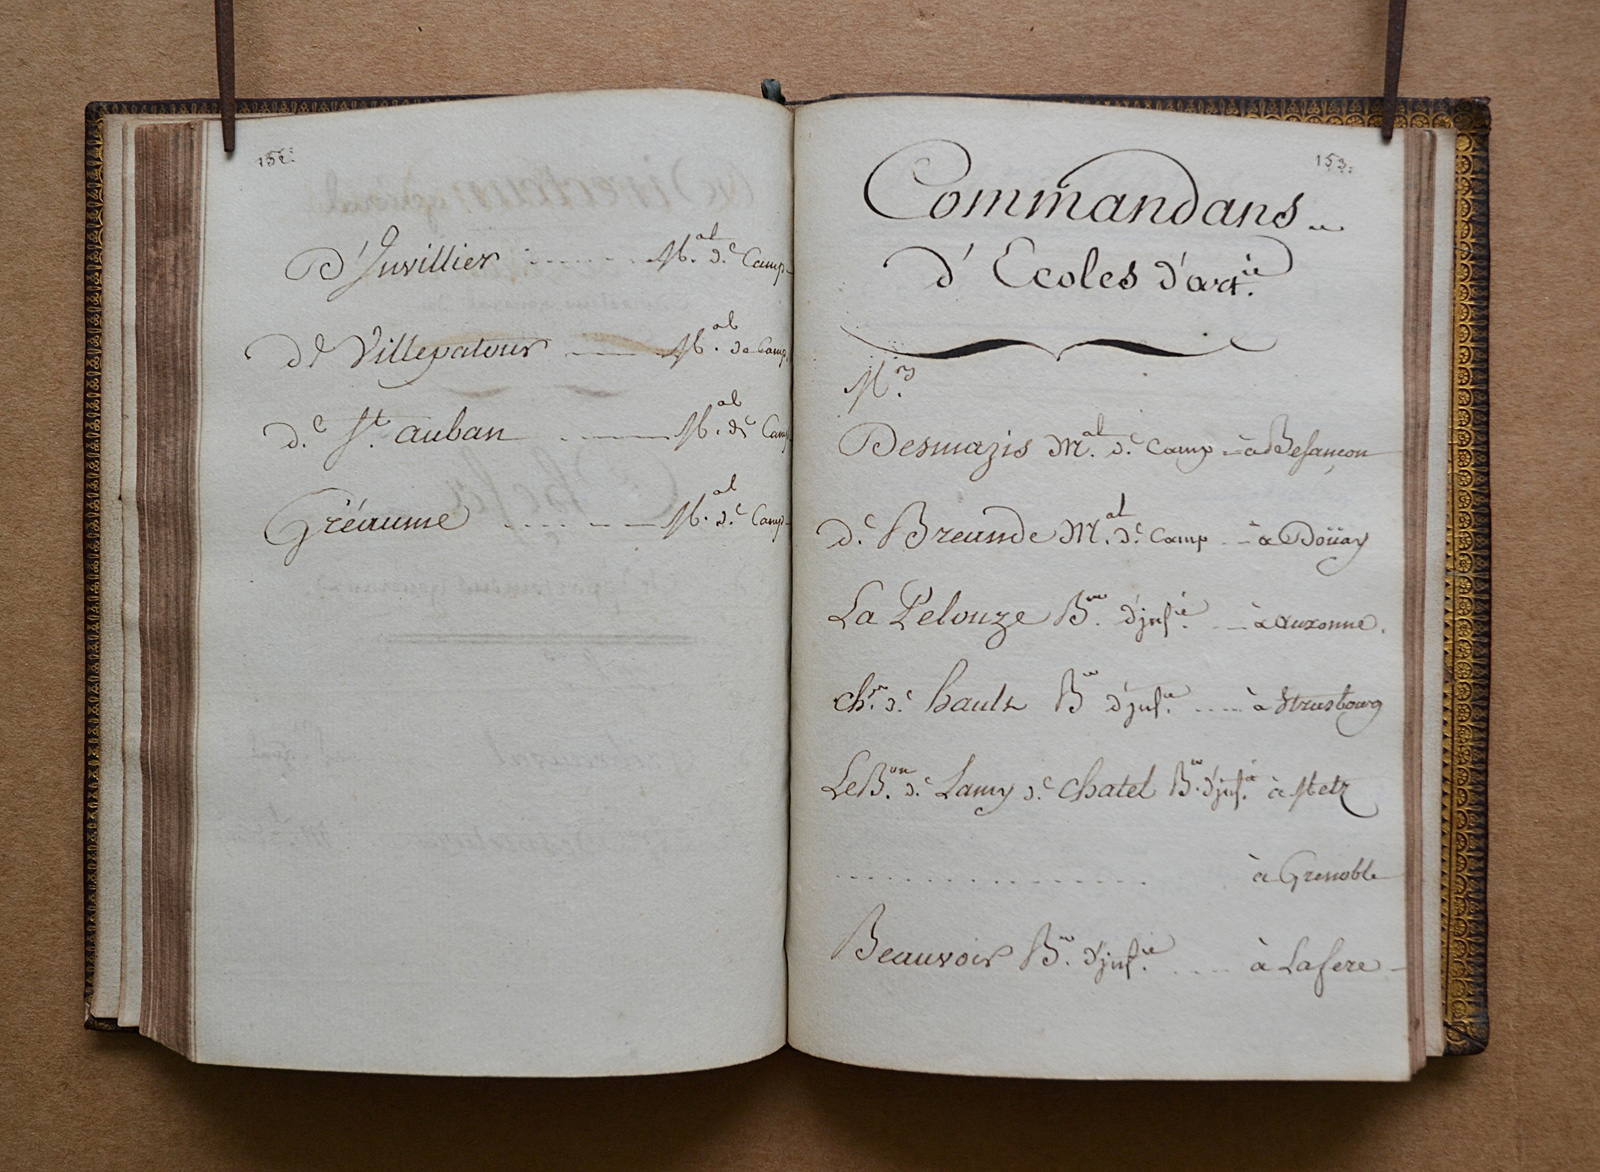 152.
D'Juvillier ........ M.al d.e Camp
de Villepatour ---- M.al de Camp
d.e S.t auban ..---- M.al d.e Camp
Gréaume ....---- M.al d.e Camp
153.
Commandans
d'Ecoles d'art.ie
M.rs
Desmazis M.al d.e Camp - à Besançon
d.e Breande M.al d.e Camp .. à Doüay
La Pelouze B. d'jnf.ie ... à auxonne.
ch.er d.e hault B. d'jnf.ie .... à Strasbourg
Le B.on d.e Lamy d.e chatel B. d'jnf.ie à Metz
.................... à Grenoble
Beauvoir B. d'jnf.ie .... à Lafere